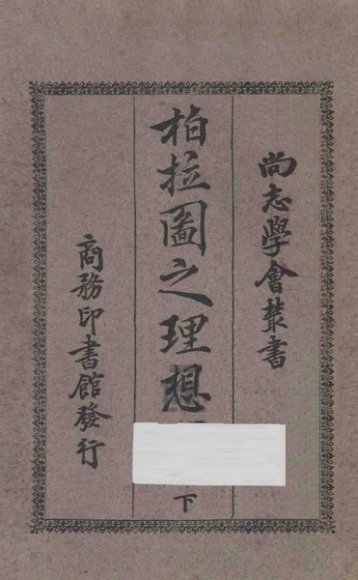 尚志學會叢書
柏拉圖之理想
下
商務印書館發行